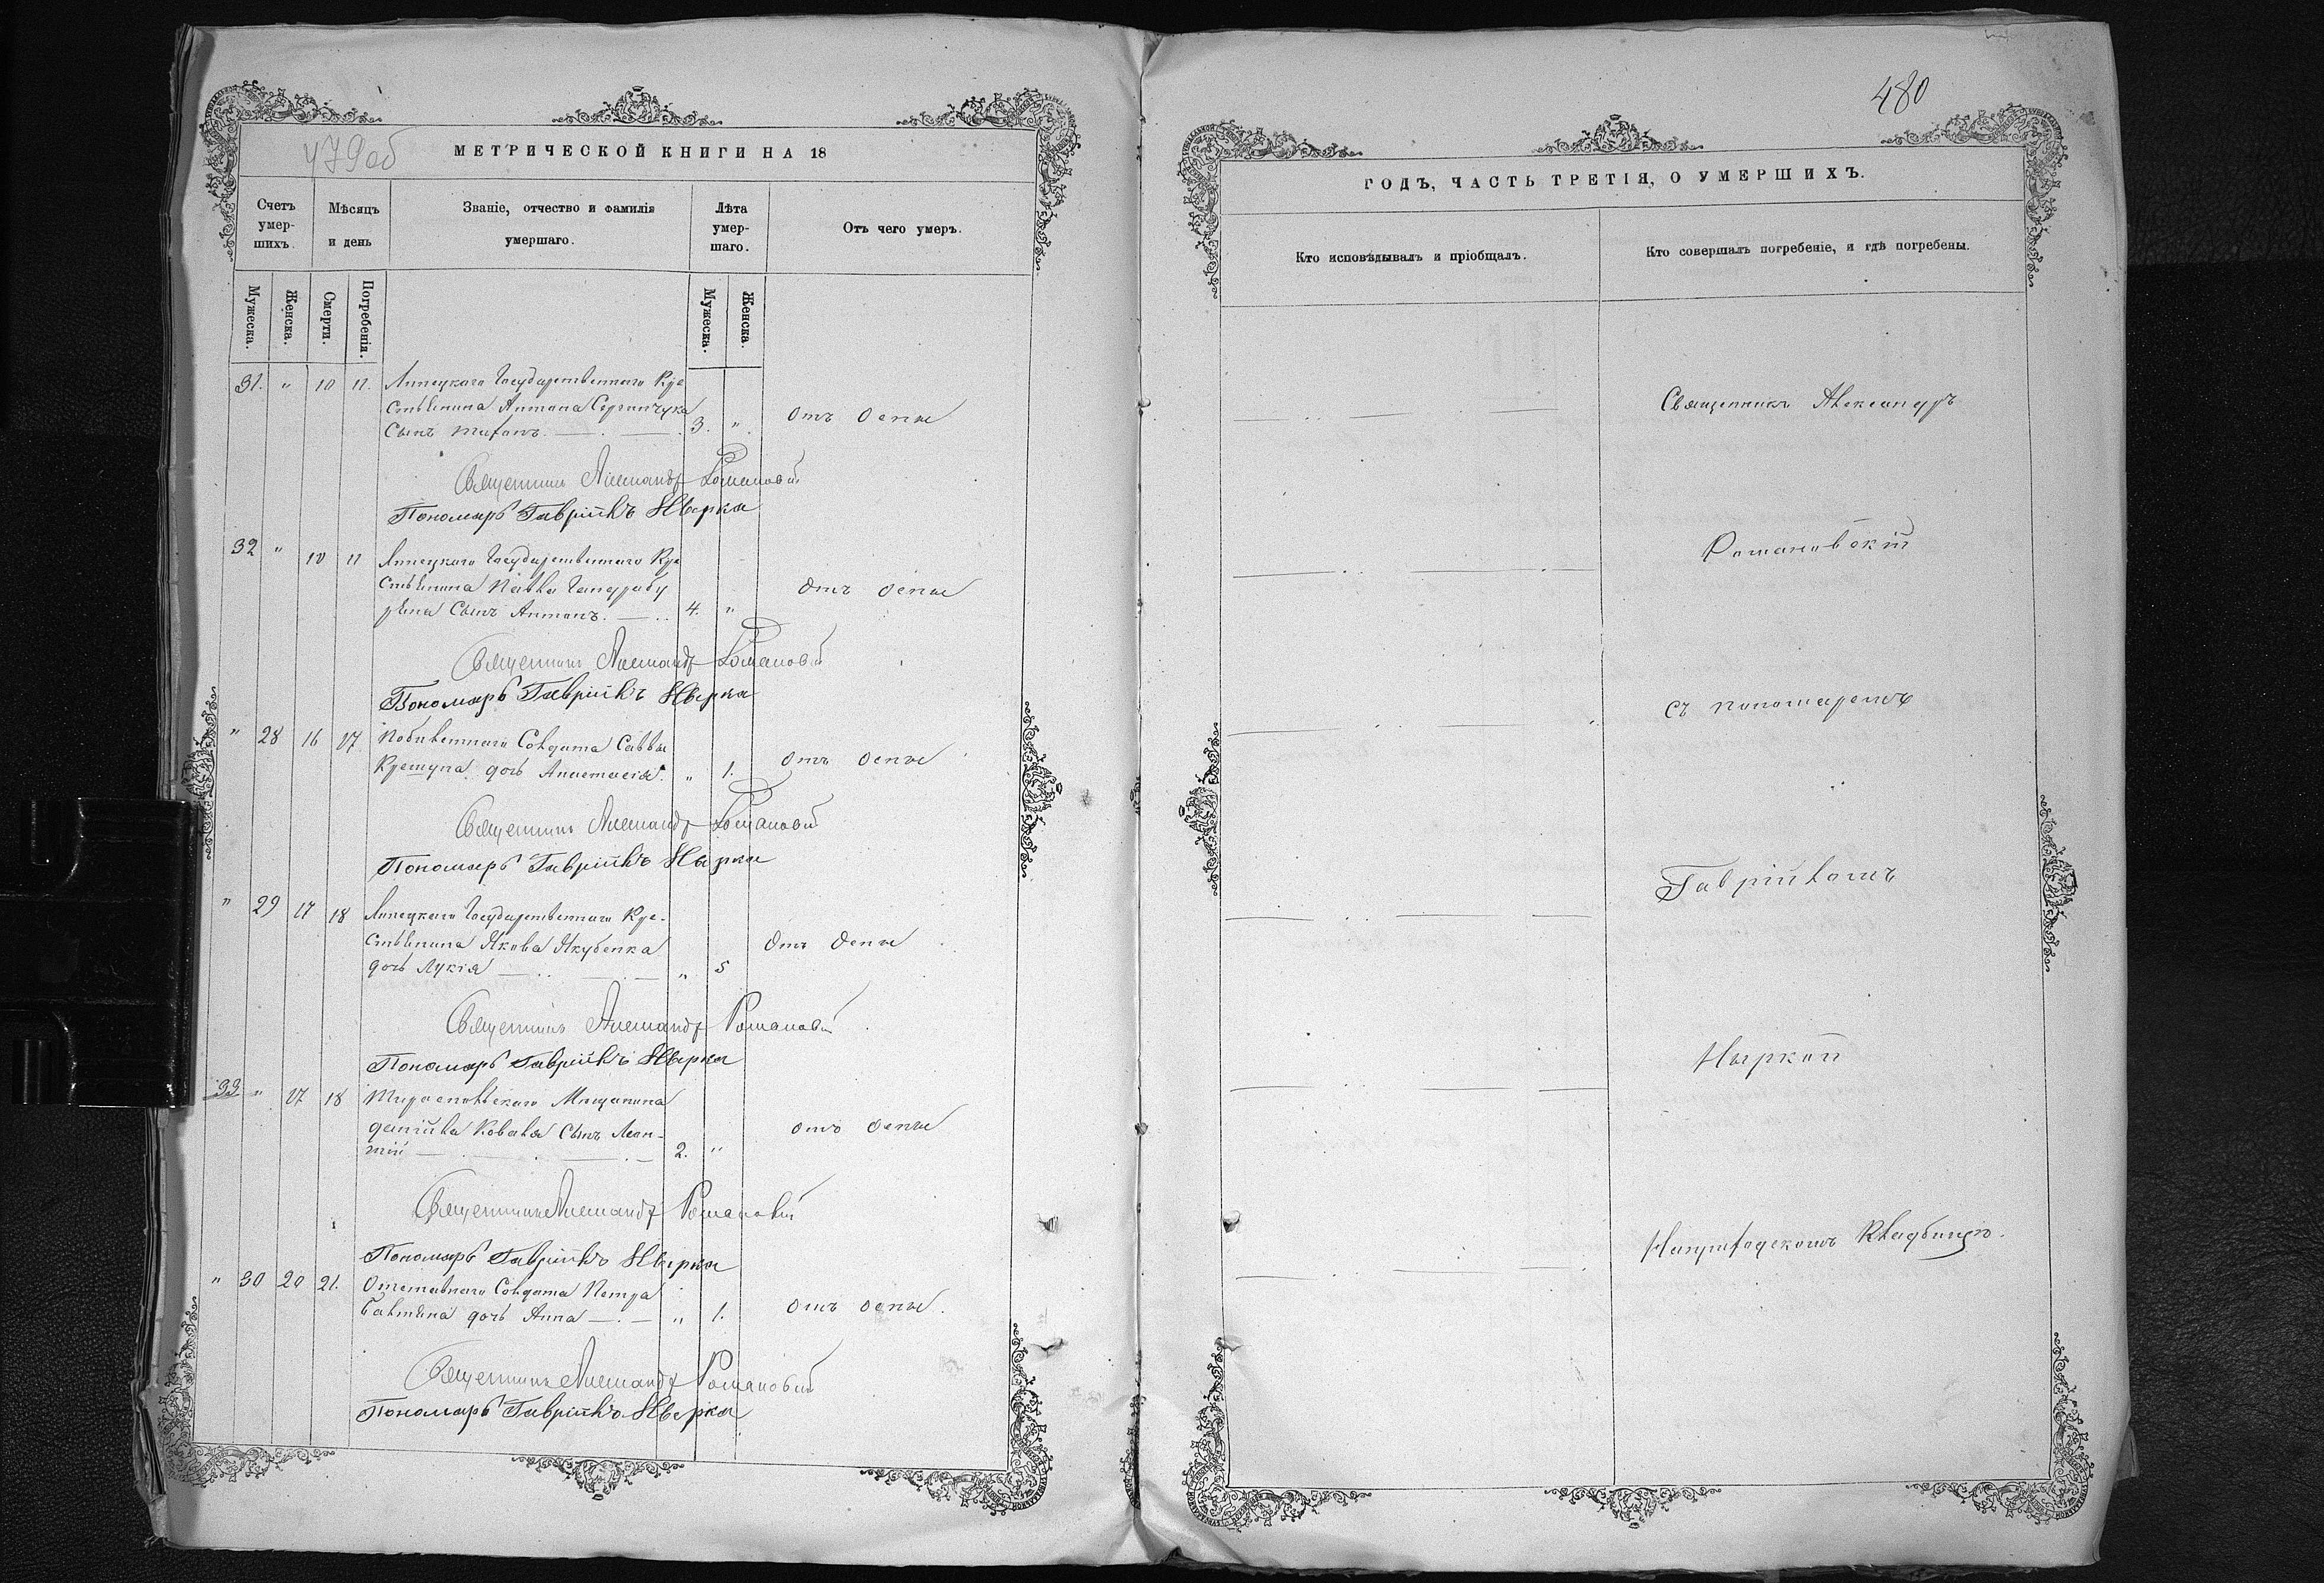 479об
МЕТРИЧЕСКОЙ КНИГИ НА 18
Счетъ умер-шихъ.
Мѣсяцъ и день
Званіе, отчество и фамилія умершаго.
Лѣта умер-шаго.
Отъ чего умеръ.
Мужеска.
Женска.
Смерти.
Погребенія.
Мужеска.
Женска.
31. " 10 11. Липецкаго Государственнаго Кре
стьянина Антона
Сынъ Тифонъ. 3. " отъ оспы
Священникъ Александръ Романовскій
Пономарь Гавріилъ Нырка
32 " 10 11 Липецкаго Государственнаго Кре
стьянина Павла
Сынъ Антонъ. 4. " Отъ оспы
Священникъ Александръ Романовскій
Пономарь Гавріилъ Нырка
" 28 16 17 Солдата Саввы
дочь Анастасія. " 1. Отъ оспы
Священникъ Александръ Романовскій
Пономарь Гавріилъ Нырка
" 29 17 18 Липецкаго Государственнаго Кре-
стьянина Якова Якубенка
дочь Лукія " 5 Отъ Оспы
Священникъ Александръ Романовскій
Пономарь Гавріилъ Нырка
33 " 17 18 Тираспольскаго Мещанина
Даніила Коваля Сынъ Леон-
тій 2. " отъ оспы
Священникъ Александръ Романовскій
Пономарь Гавріилъ Нырка
" 30 20 21. Отставнаго Солдата Петра
дочь Анна " 1. отъ оспы.
Священникъ Александръ Романовскій
Пономарь Гавріилъ Нырка
480
ГОДЪ, ЧАСТЬ ТРЕТІЯ, О УМЕРШИХЪ.
Кто исповѣдывалъ и пріобщалъ.
Кто совершалъ погребеніе, и гдѣ погребены.
Священникъ Александръ
Романовскій
съ пономаремъ
Гавріиломъ
Ныркой
На приходскомъ кладбищѣ.